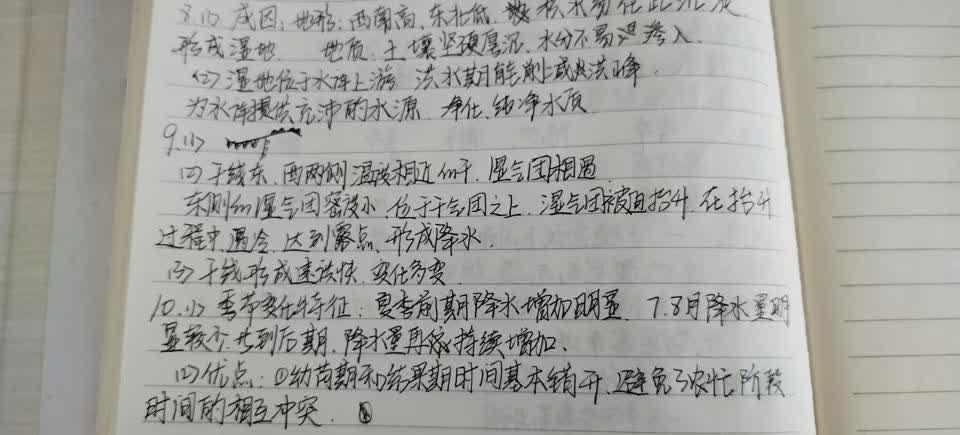 8.(1) 成因：地形：西南高、东北低，积水易在此沉淀
形成湿地 地质：土壤坚硬厚沉，水分不易渗入.
(2) 湿地位于水库上游 洪水期能削减洪峰.
为水库提供充沛的水源. 净化、纯净水质
9.(1)
(2) 干线东、西两侧温度相近的干、湿气团相遇
东侧的湿气团密度小、位于干气团之上、湿气团被迫抬升、在抬升
过程中遇冷、达到露点、形成降水.
(3) 干线形成速读快、变化多变
10.(1) 季节变化特征：夏季前期降水增加明显、7.8月降水量明
显较少 到后期、降水量再依持续增加.
(2) 优点：①幼苗期和结果期时间基本错开、避免了农忙阶段
时间的相互冲突. ②